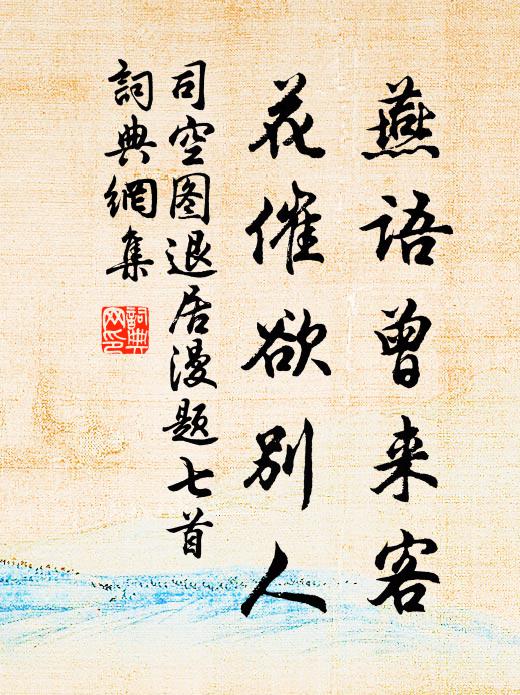 燕语曾来客
花催欲别人
司空图退居漫题七首
詞典網集
詞典网印